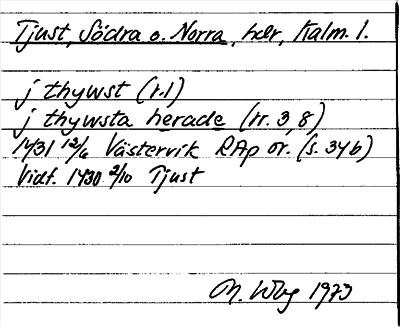 Tjust, Södra o. Norra, här, Kalm. l.
j thywst (r. 1)
j thywsta herade (rr. 3, 8)
1431 12/6 Västervik RAp or. (s. 346)
Vidf. 1430 2/10 Tjust
M. 1973